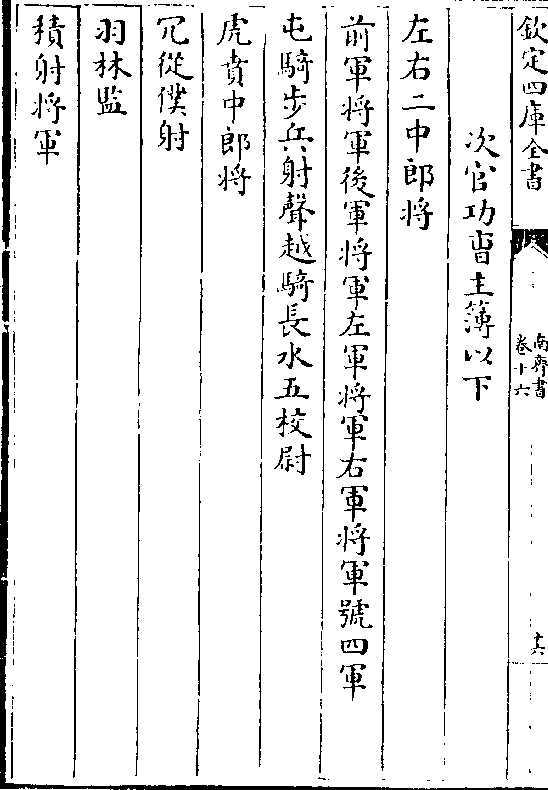 欽定四庫全書
南齊書
卷十六
十六
次官功曹主簿以下
左右二中郎將
前軍將軍後軍將軍左軍將軍右軍將軍號四軍
屯騎步兵射聲越騎長水五校尉
虎賁中郎將
冗從僕射
羽林監
積射將軍